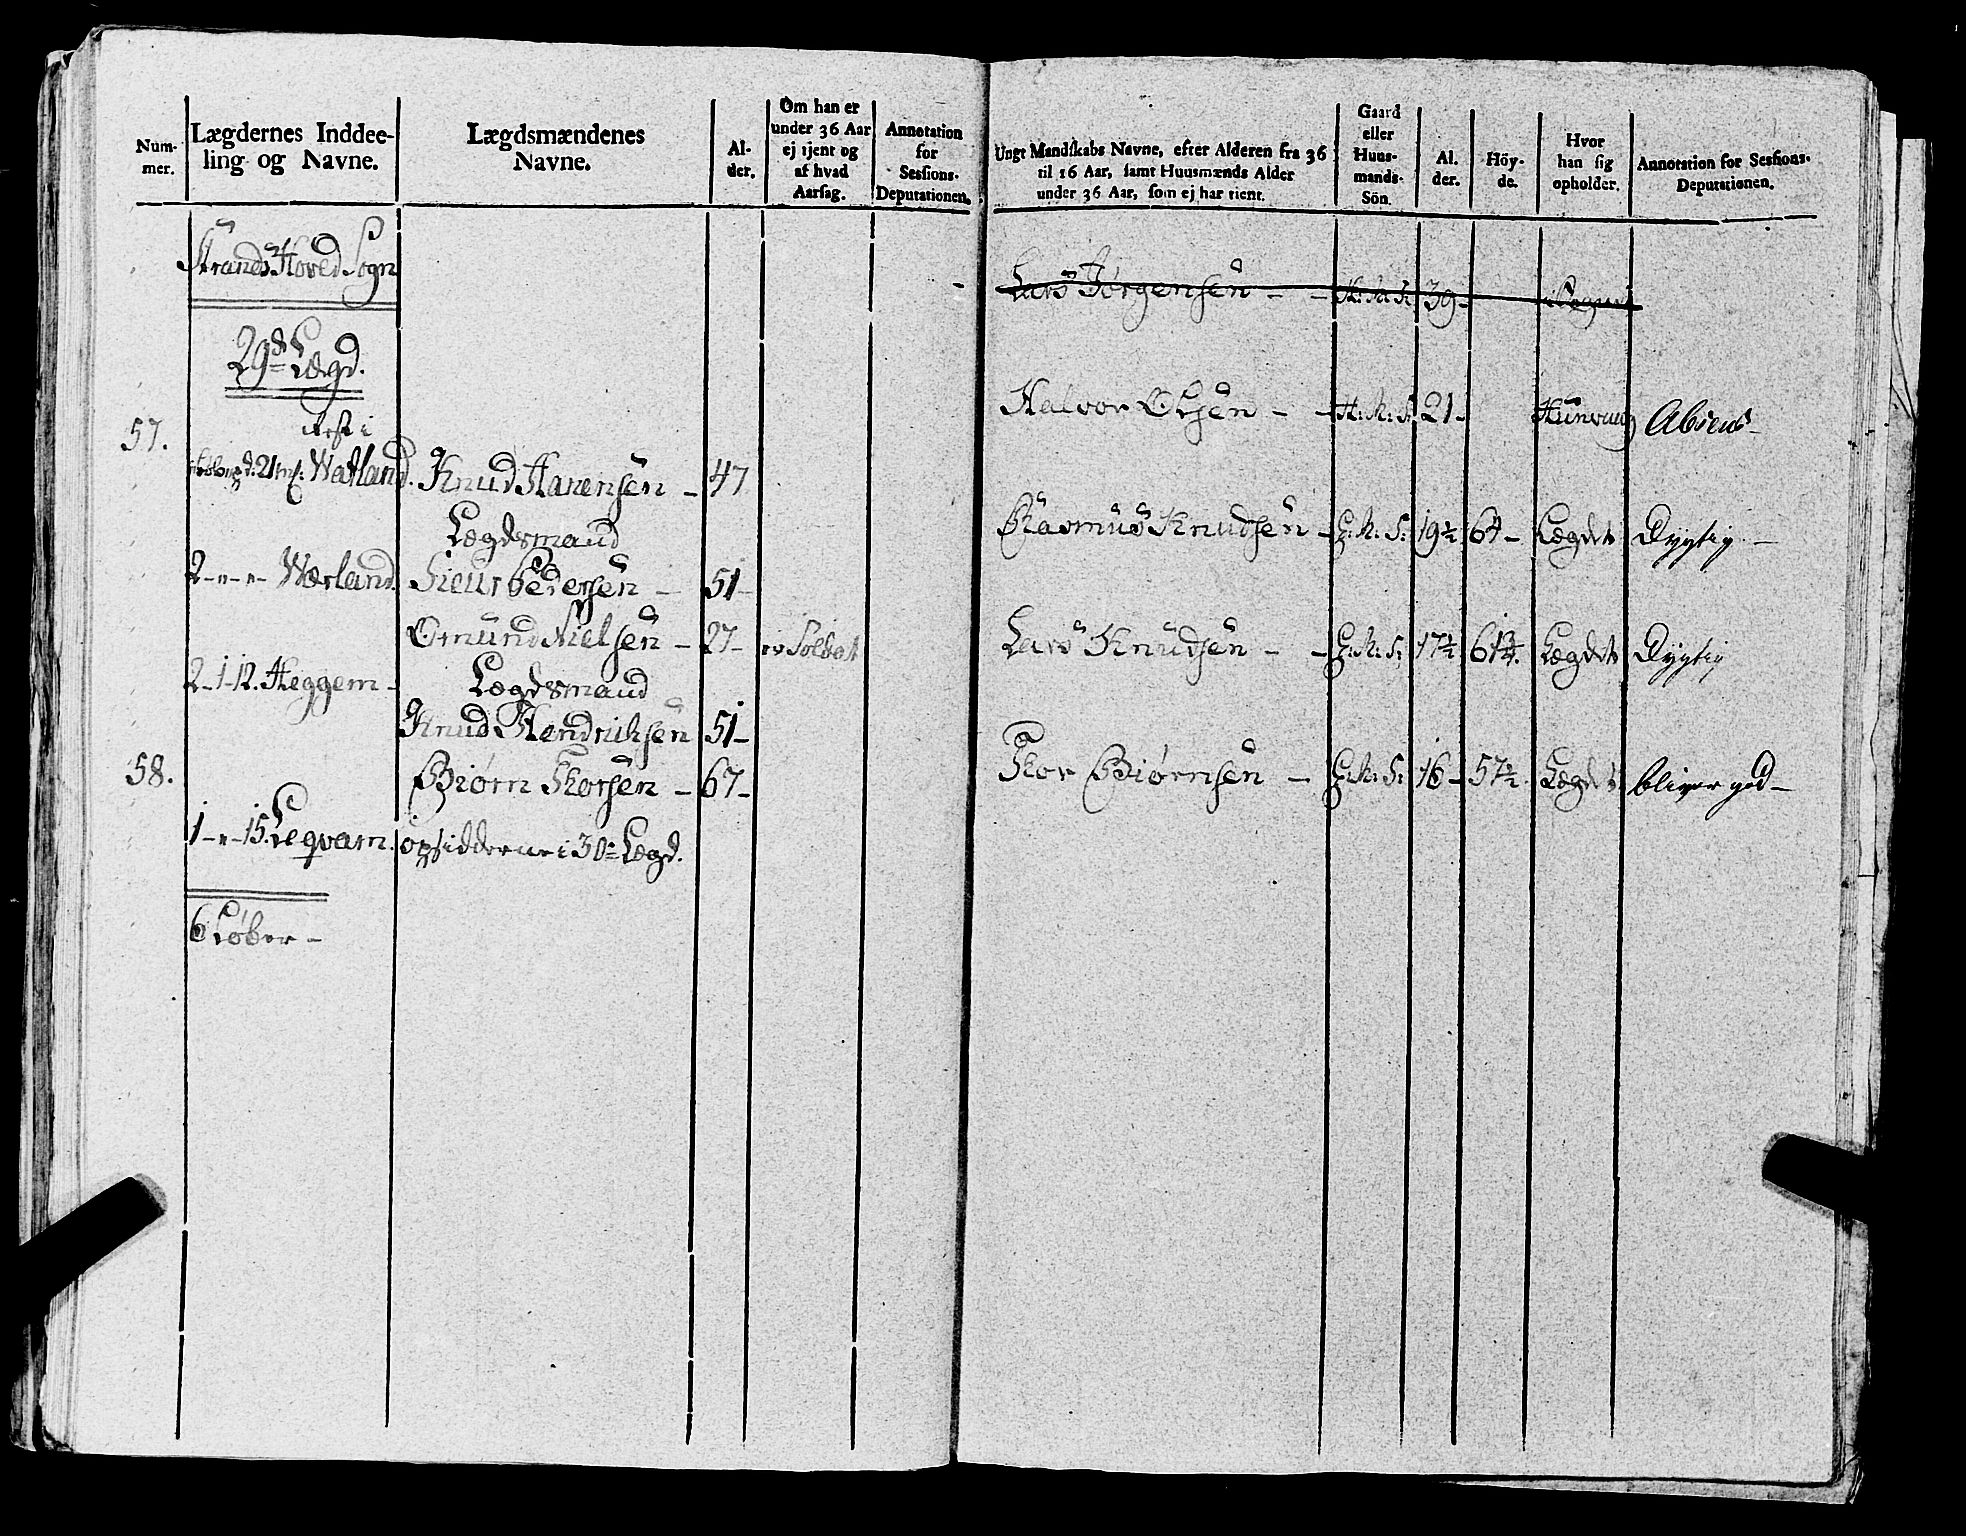 Num-
mer.
Lægdernes Inddee-
ling og Navne.
Lægdsmændenes
Navne.
Al-
der.
Om han er
under 36 Aar
ej tjent og
af hvad
Aarsag.
Annotation
for
Sessions-
Deputationen.
Strands Hoved Sogn
29de Lægd.
57.
Rest i
21 Mk: Watland.
Knud Hansensen - 47
Lægdsmand
2 - " - " - Wærland.
Sieur Pedersen - 51 -
Omund Nielsen - 27 - er Soldat
2 - 1 - 12. Heggem -
Lægdsmand
Knud Hendriksen 51 -
58.
Biørn Thorsen - 67 -
1 - " - 15. Leqvam.
opsidderne i 30te Lægd.
6 Løber -
Ungt Mandskabs Navne, efter Alderen fra 36
til 16 Aar, samt Huusmænds Alder
under 36 Aar, som ej har tient.
Gaard
eller
Huus-
mands-
Sön.
Al.
der.
Höy-
de.
Hvor
han sig
opholder.
Annotation for Sessions-
Deputationen.
Lars Jørgensen - - H: M: S: 39 -
Halvor Olsen - - H: M: S: 21 - Absens -
Rasmus Knudsen - G: M: S: 19½ 64 - Lægdet Dygtig -
Lars Knudsen - - G: M: S: 17½ Lægdet Dygtig
Thor Biørnsen - G: M: S: 16 - 57½ Lægdet bliver god -